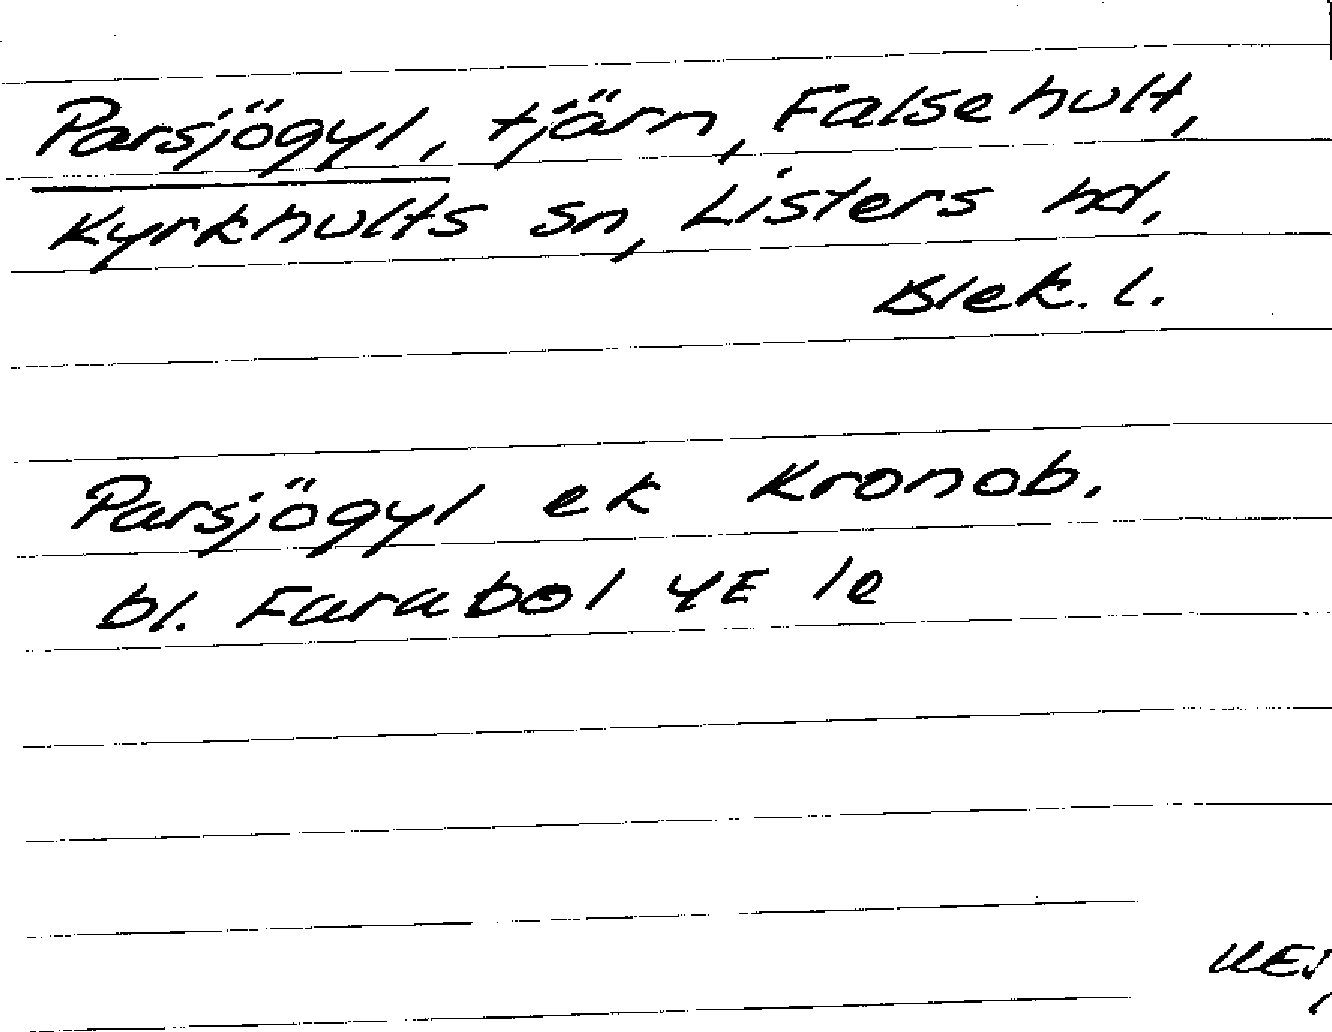 Parsjögyl, tjärn, Falsehult,
Kyrkhults sn, Listers hd.
Blek. l.
Parsjögyl ek Kronob.
bl. Farabol 4E 1e